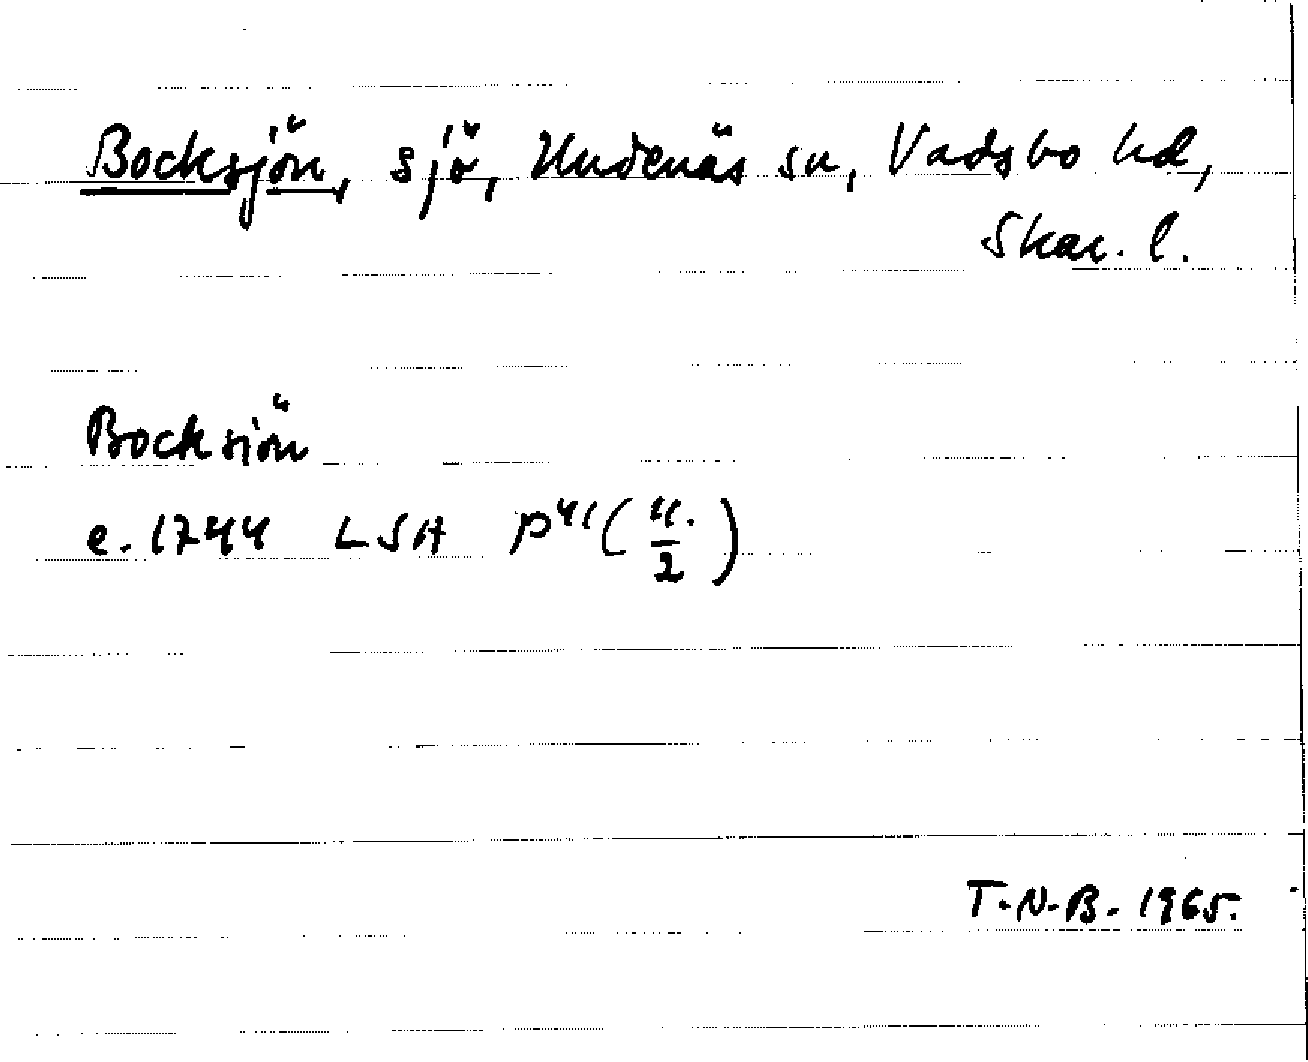 Bocksjön, sjö, Undenäs sn, Vadsbo hd,
Skar. l.
Bocksiön
e. 1744 LSA P41( 11. / 2 )
T.N.B. 1965.